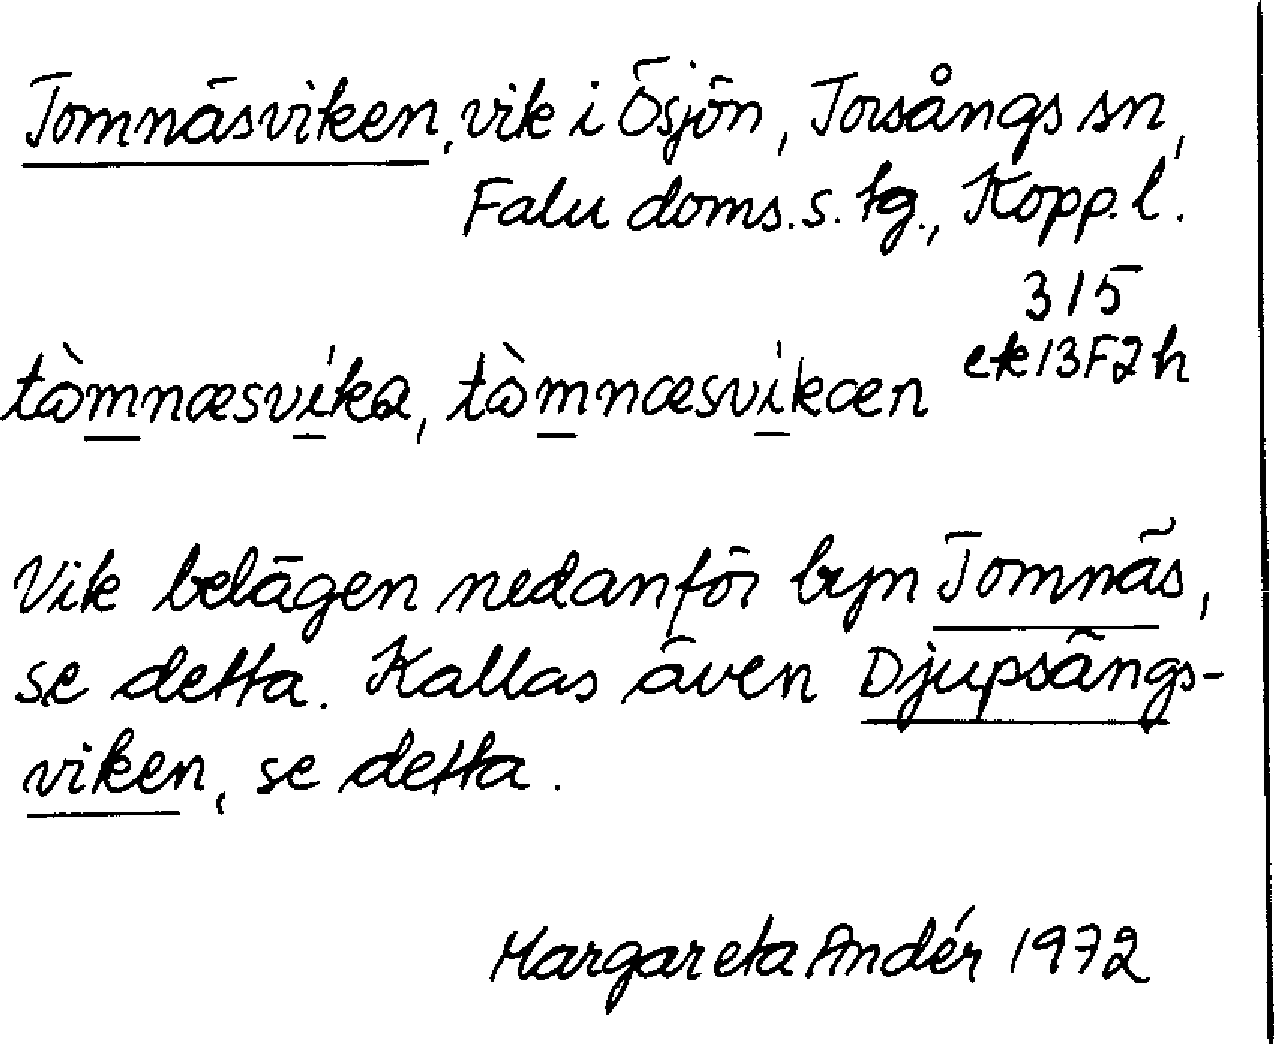 Tomnäsviken, vik i Ösjön, Torsångs sn,
Falu doms.s. tg., Kopp.l.
315
ek 13F2h
tòmnæsvíka, tòmnæsvíkæn
Vik belägen nedanför byn Tomnäs,
se detta. Kallas även Djupsängs-
viken, se detta.
Margareta Andér 1972